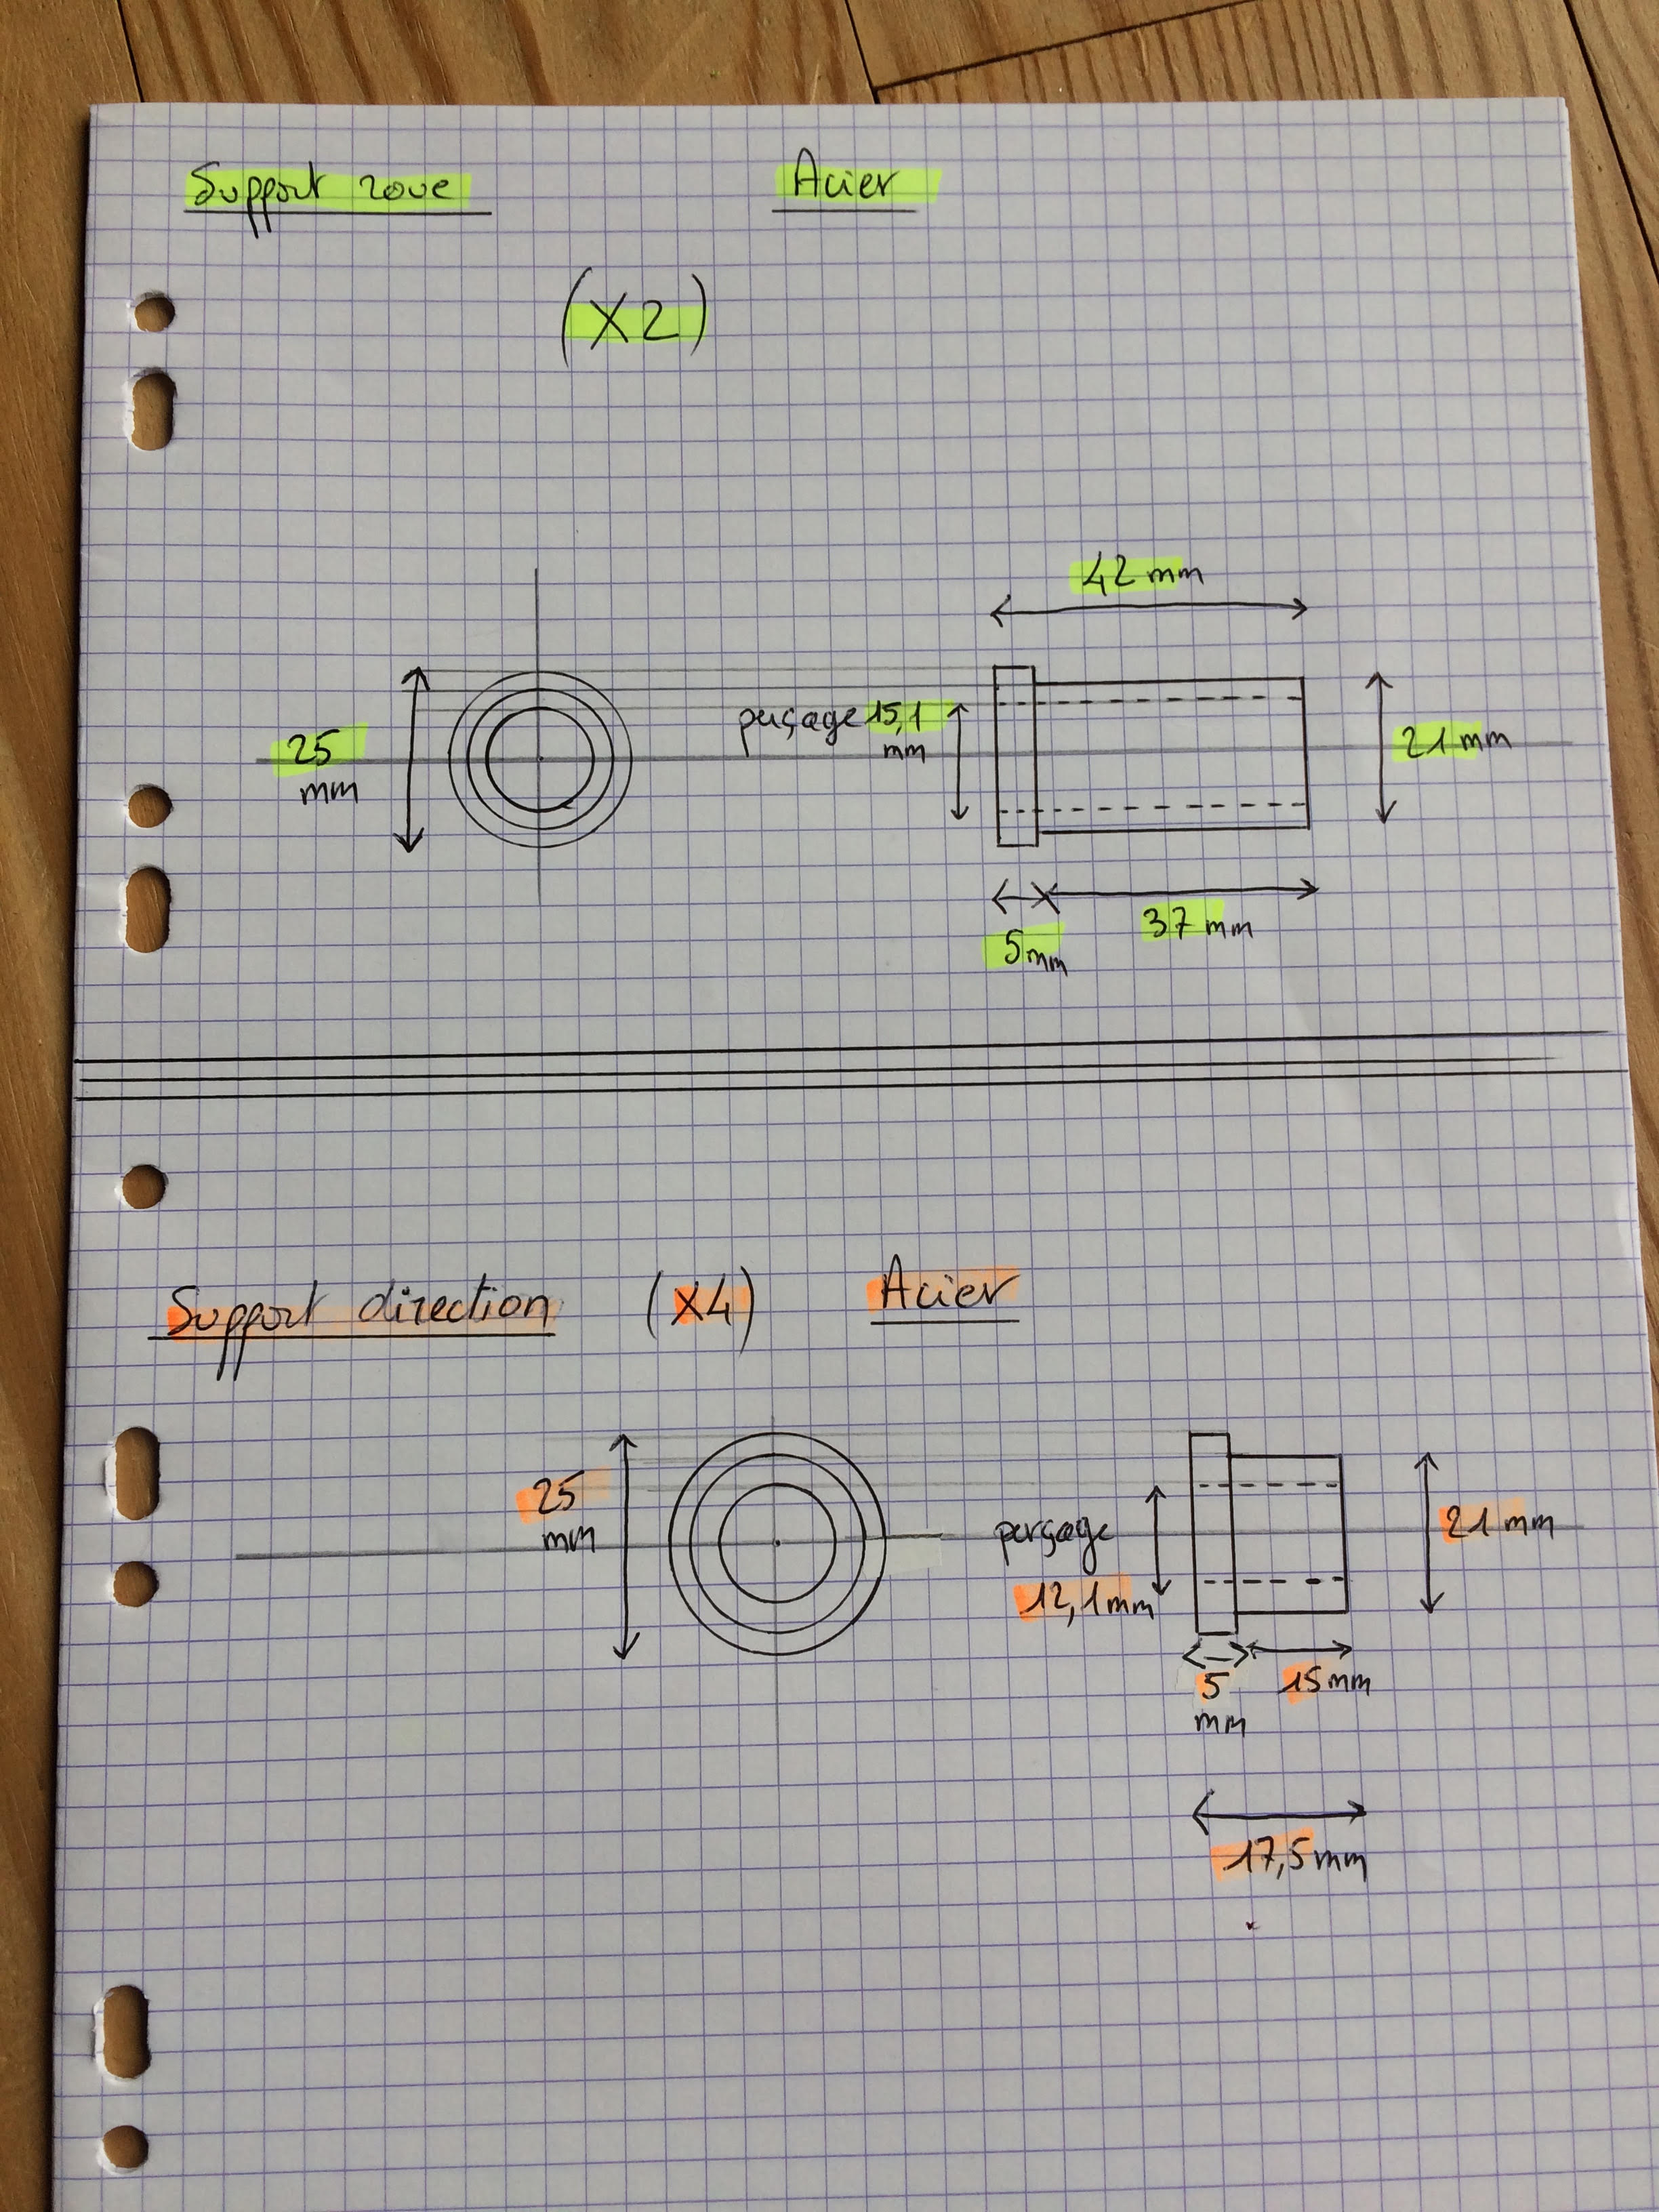 Support roue
Acier
(X2)
42 mm
25
mm
perçage 15,1
mm
21 mm
5mm
37 mm
Support direction (X4) Acier
25
mm
perçage
12,1mm
21 mm
5
mm
15mm
17,5mm